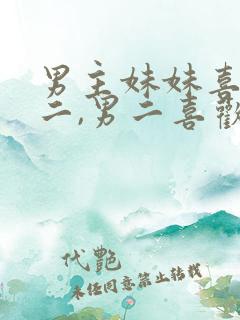 男主妹妹喜
二,男二喜歡
代艷
未经同意禁止转载